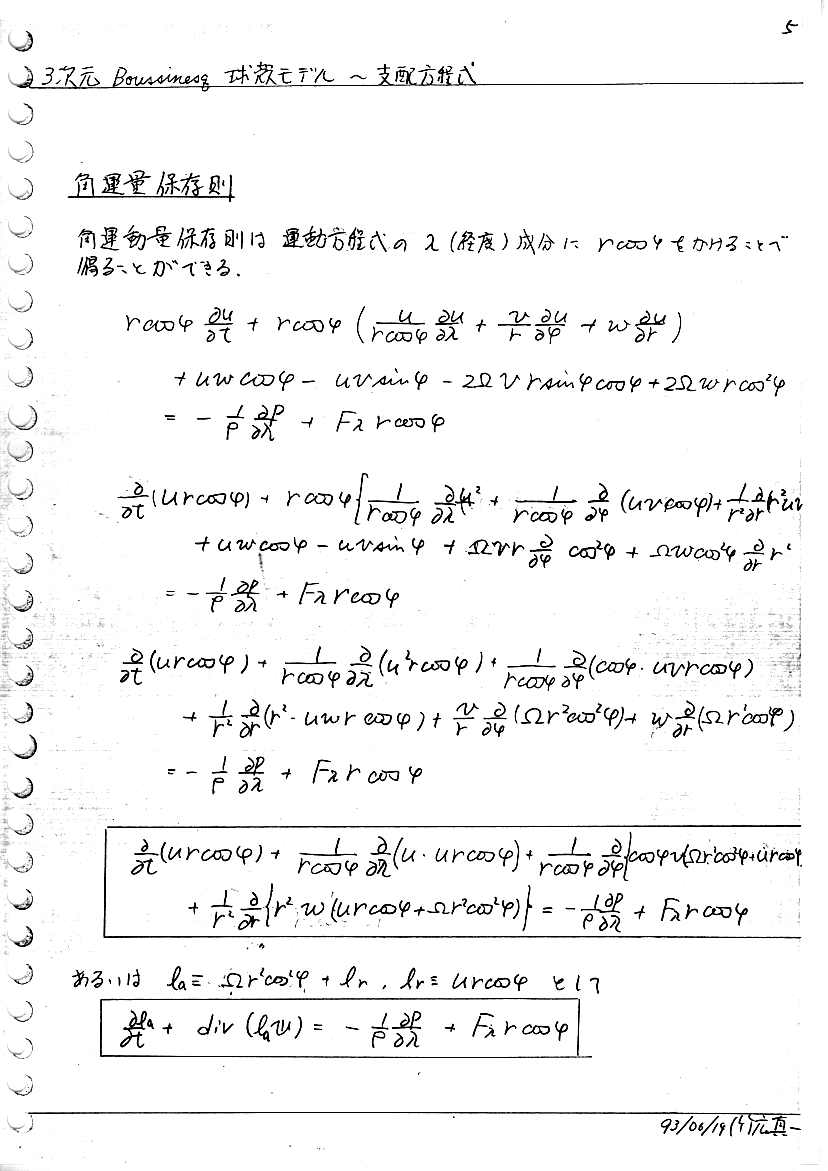 5
3次元 Boussinesq 球殻モデル ~ 支配方程式
角運量保存則
角運動量保存則は 運動方程式の λ (経度) 成分に rcosφ をかけることで
得ることができる.
rcosφ ∂u/∂t + rcosφ ( u/(rcosφ) ∂u/∂λ + v/r ∂u/∂φ + w ∂u/∂r )
+ uw cosφ - uv sinφ - 2Ω v r sinφ cosφ + 2Ω w r cos²φ
= - 1/ρ ∂P/∂λ + Fλ r cosφ
∂/∂t (u r cosφ) + r cosφ [ 1/(rcosφ) ∂/∂λ u² + 1/(rcosφ) ∂/∂φ (uv cosφ) + 1/r² ∂/∂r (r² uw
+ uw cosφ - uv sinφ + Ω v r ∂/∂φ cos²φ + Ω w cos²φ ∂/∂r r²
= - 1/ρ ∂P/∂λ + Fλ r cosφ
∂/∂t (u r cosφ) + 1/(rcosφ) ∂/∂λ (u² r cosφ) + 1/(rcosφ) ∂/∂φ (cosφ · uv r cosφ)
+ 1/r² ∂/∂r (r² · uw r cosφ) + v/r ∂/∂φ (Ω r² cos²φ) + w ∂/∂r (Ω r² cos²φ)
= - 1/ρ ∂P/∂λ + Fλ r cosφ
∂/∂t (u r cosφ) + 1/(rcosφ) ∂/∂λ (u · u r cosφ) + 1/(rcosφ) ∂/∂φ { cosφ v (Ω r² cos²φ + u r cosφ
+ 1/r² ∂/∂r { r² w (u r cosφ + Ω r² cos²φ) } = - 1/ρ ∂P/∂λ + Fλ r cosφ
あるいは la ≡ Ω r² cos²φ + lr , lr ≡ u r cosφ として
∂la/∂t + div (la u) = - 1/ρ ∂P/∂λ + Fλ r cosφ
93/06/19